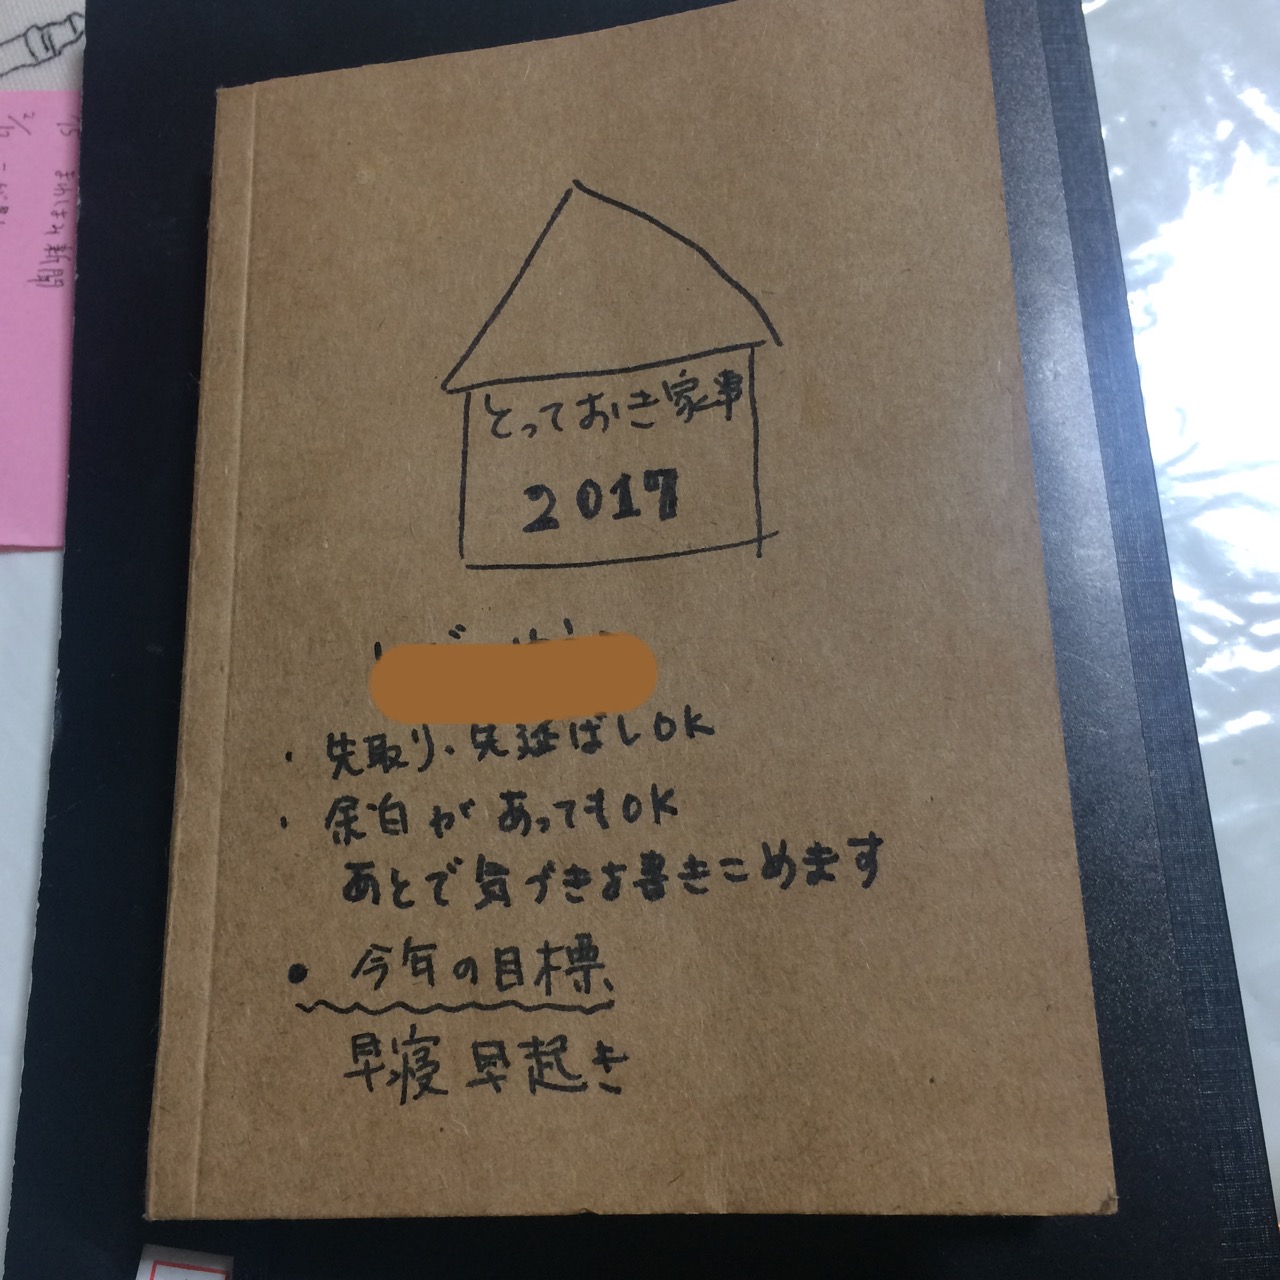 とっておき家事
2017
・先取り・先延ばしOK
・余白があってもOK
あとで気づきを書きこめます
● 今年の目標
早寝早起き
新聞